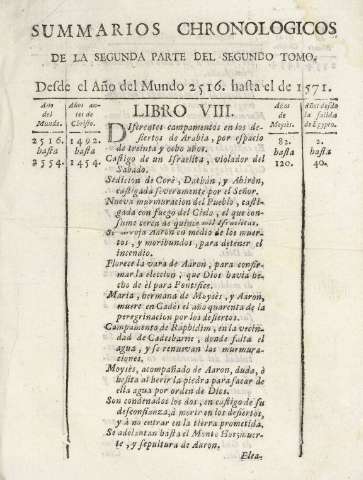 SUMMARIOS CHRONOLOGICOS
DE LA SEGUNDA PARTE DEL SEGUNDO TOMO.
Desde el Año del Mundo 2516. hasta el de 1571.
Año del Mundo.
2516.
hasta
2554.
Años antes de Christo.
1492.
hasta
1454.
LIBRO VIII.
Diferentes campamentos en los de-
siertos de Arabia, por espacio
de treinta y ocho años.
Castigo de un Israelita, violador del
Sabado.
Sedicion de Corè, Dathàn, y Abiròn,
castigada severamente por el Señor.
Nueva murmuracion del Pueblo, casti-
gada con fuego del Cielo, el que con-
sume cerca de quince mil
Se arroja Aaron en medio de los muer-
tos, y moribundos, para detener el
incendio.
Florece la vara de Aaron, para confir-
mar la eleccion, que Dios havia he-
cho de èl para Pontifice.
Maria, hermana de Moysès, y Aaron,
muere en Cadès el año quarenta de la
peregrinacion por los desiertos.
Campamento de Raphidim, en la vecin-
dad de Cadesbarne, donde falta el
agua, y se renuevan las murmura-
ciones.
Moysès, acompañado de Aaron, duda, ò
hesita al herir la piedra para sacar de
ella agua por orden de Dios.
Son condenados los dos, en castigo de su
desconfianza, à morir en los desiertos,
y à no entrar en la tierra prometida.
Se adelantan hasta el Monte Hor; muer-
te, y sepultura de Aaron.
Años de Moysès.
82.
hasta
120.
Años desde la salida de Egypto.
2.
hasta
40.